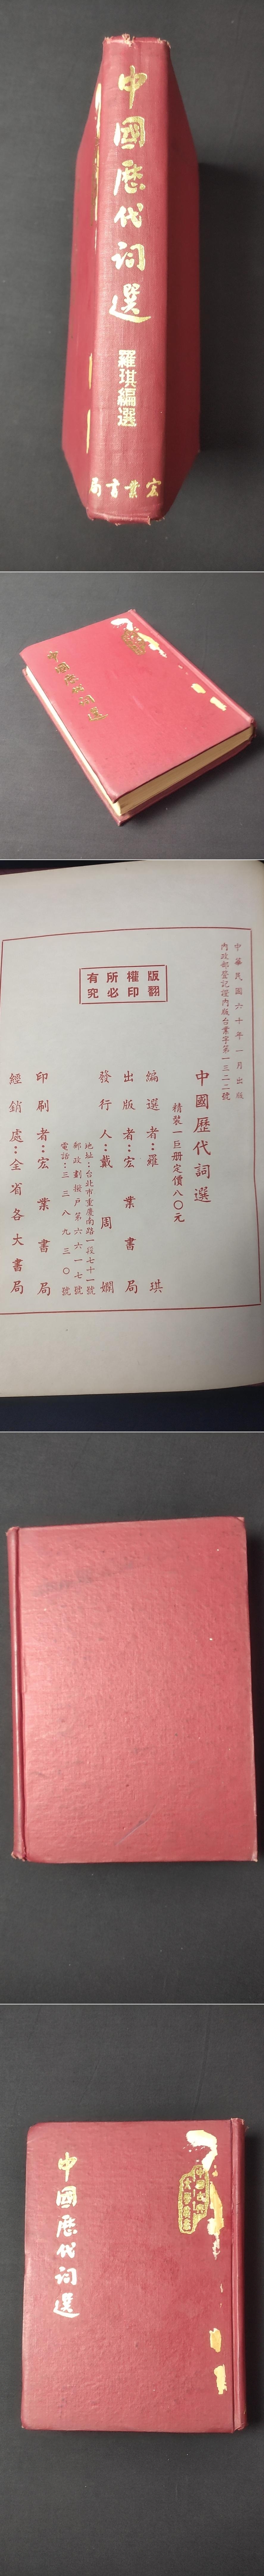 中國歷代詞選
羅琪編選
宏業書局
中國歷代詞選
中華民國六十年一月出版
內政部登記證內版台業字第一三二二號
中國歷代詞選
精裝一巨册定價八〇元
編選者:羅琪
出版者:宏業書局
發行人:戴周嫻
地址:台北市重慶南路一段七十一號
郵政劃撥戶第六六一七號
電話:三三八九三〇號
印刷者:宏業書局
經銷處:全省各大書局
版權所有
翻印必究
中國歷代詞選
中國古典
文學叢